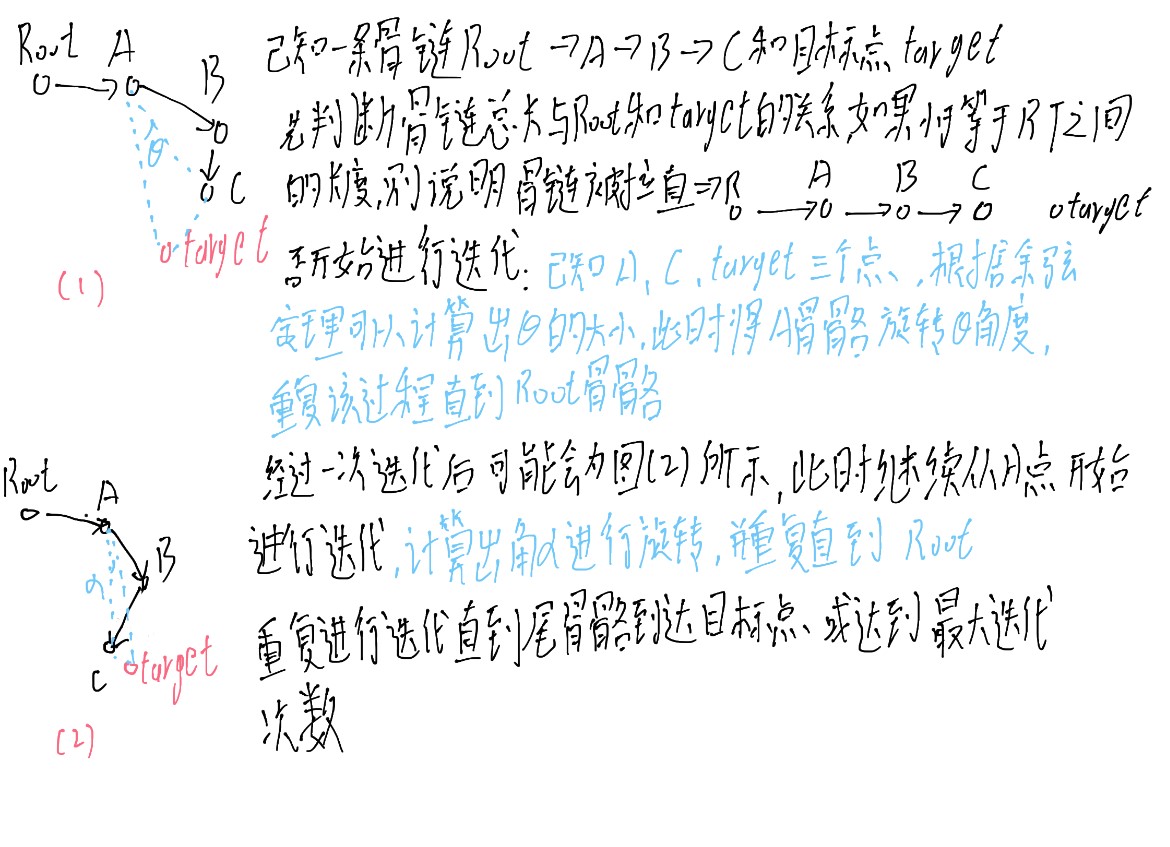 Root A B C θ target
(1)
已知一条骨链Root→A→B→C和目标点target
先判断骨链总长与Root和target的关系,如果小于等于RT之间
的长度,则说明骨链被拉直⇒R A B C target
否开始进行迭代:已知A,C,target三个点,根据余弦
定理可以计算出θ的大小,此时将A骨骼旋转θ角度,
重复该过程直到Root骨骼
Root A B C α target
(2)
经过一次迭代后可能会为图(2)所示,此时继续从A点开始
进行迭代,计算出角α进行旋转,并重复直到 Root
重复进行迭代直到尾骨骼到达目标点、或达到最大迭代
次数